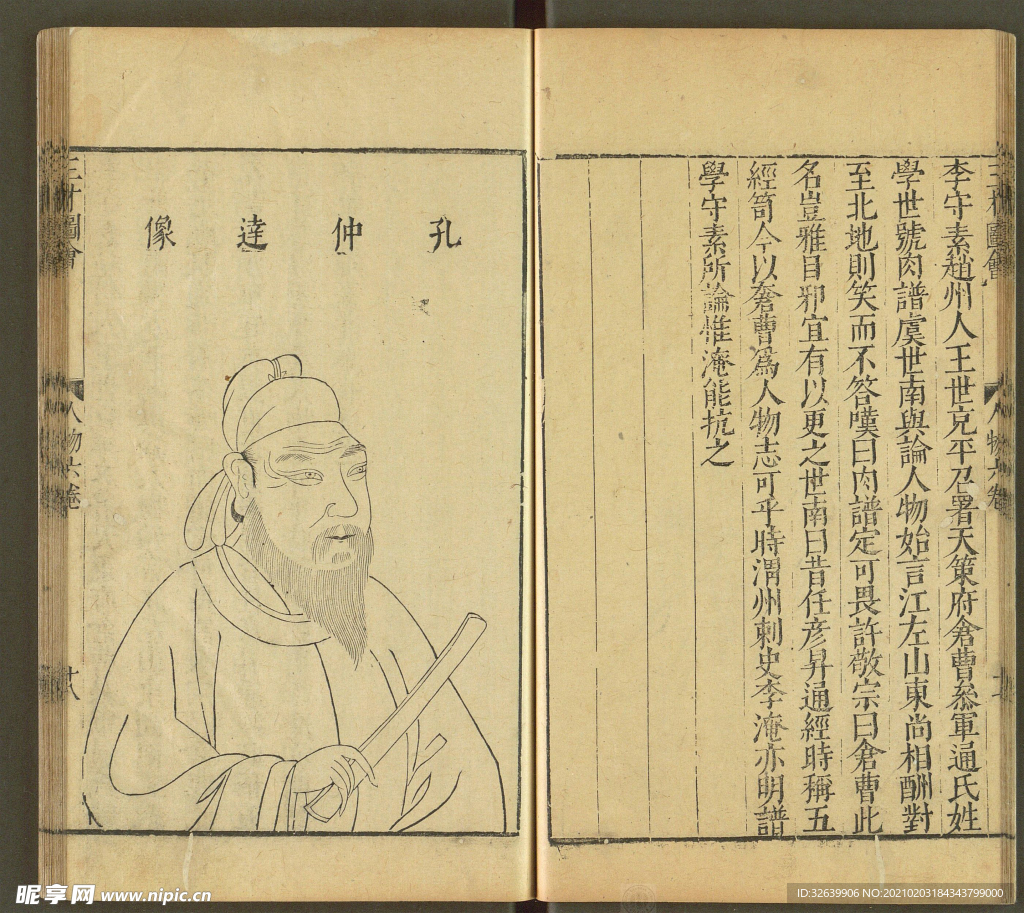 李守素趙州人王世充平召署天策府倉曹叅軍通氏姓
學世號肉譜虞世南與論人物始言江左山東尚相酬對
至北地則笑而不答嘆曰肉譜定可畏許敬宗曰倉曹此
名豈雅目邪宜有以更之世南曰昔任彦昇通經時稱五
經笥今以奢曹爲人物志可乎時渭州刺史李淹亦明譜
學守素所論惟淹能抗之
孔仲達像
三才圖會
人物六卷
廿八
三才圖會
人物六卷
昵享网 www.nipic.cn
ID:32639906 NO:20210203184343799000